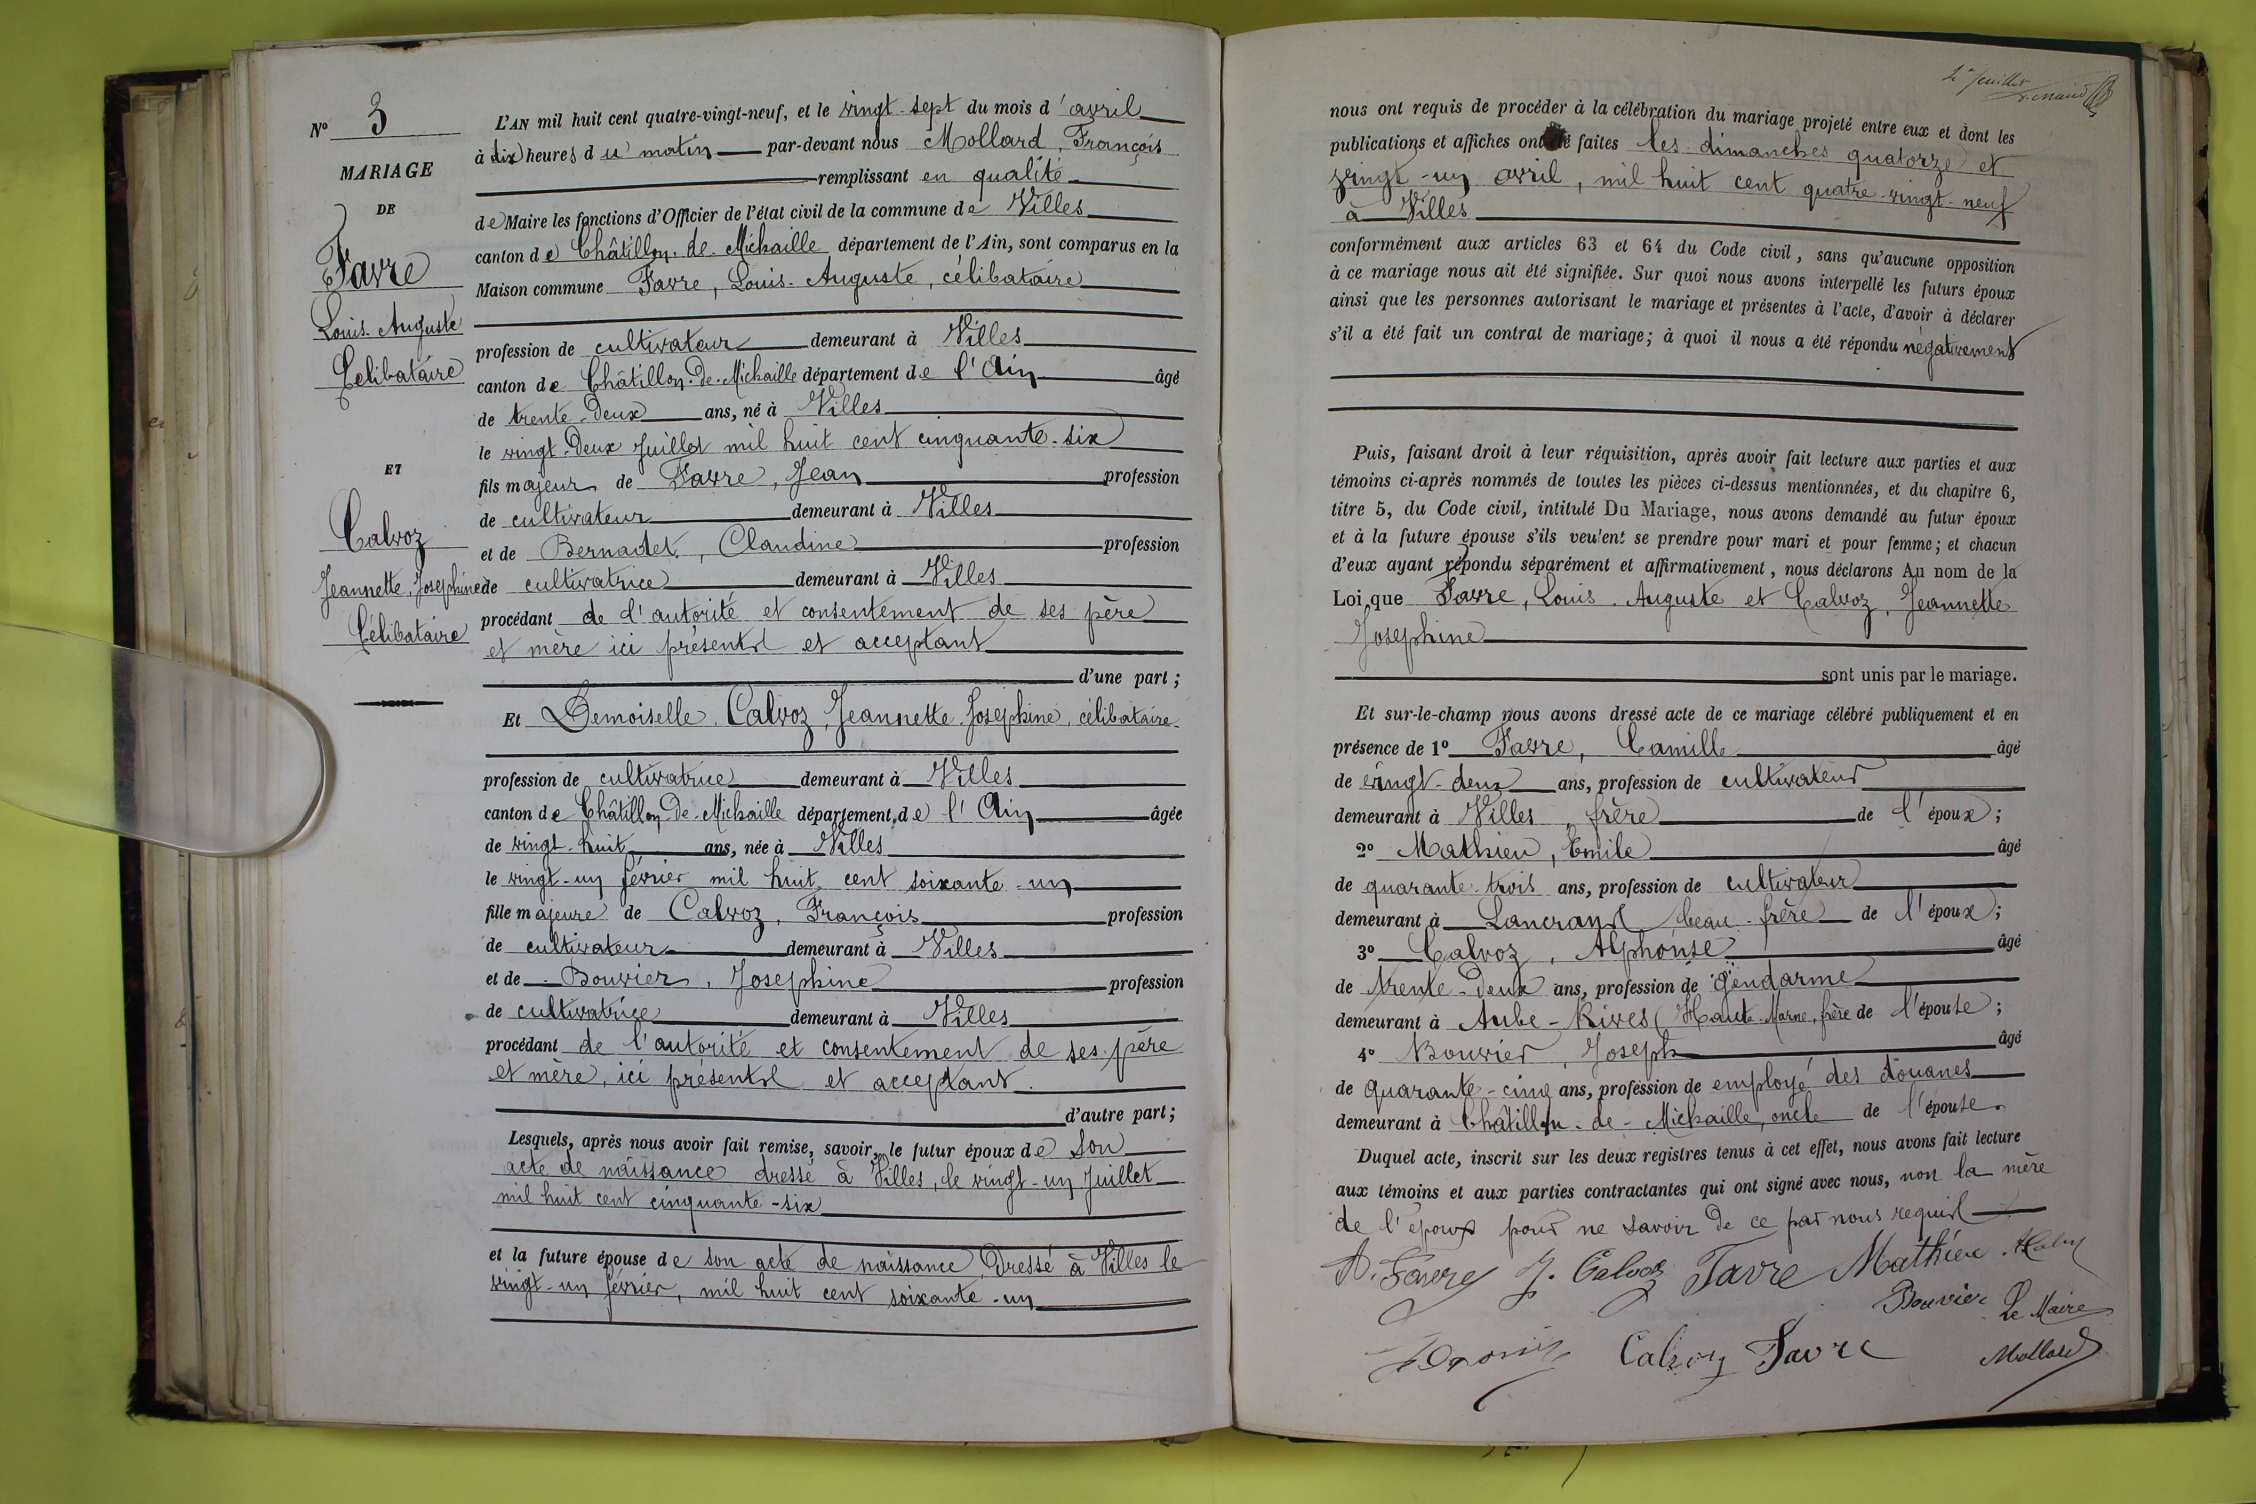 N° 3
MARIAGE
DE
Favre
Louis-Auguste
Célibataire
ET
Calvoz
Jeannette, Josephine
Célibataire
L'AN mil huit cent quatre-vingt-neuf, et le vingt-sept du mois d'avril
à dix heures du matin par-devant nous Mollard, François
remplissant en qualité
de Maire les fonctions d'Officier de l'état civil de la commune de Villes
canton de Châtillon-de-Michaille département de l'Ain, sont comparus en la
Maison commune Favre, Louis-Auguste, célibataire
profession de cultivateur demeurant à Villes
canton de Châtillon-De-Michaille département de l'Ain âgé
de trente-deux ans, né à Villes
le vingt-Deux Juillet mil huit cent cinquante-six
fils majeur de Favre, Jean profession
de cultivateur demeurant à Villes
et de Bernadet, Claudine profession
de cultivatrice demeurant à Villes
procédant de l'autorité et consentement de ses père
et mère ici présents et acceptant
d'une part ;
Et Demoiselle Calvoz, Jeannette-Josephine, célibataire
profession de cultivatrice demeurant à Villes
canton de Châtillon-De-Michaille département de l'Ain âgée
de vingt-huit ans, née à Villes
le vingt-un février mil huit cent soixante-un
fille majeure de Calvoz, François profession
de cultivateur demeurant à Villes
et de Bouvier, Josephine profession
de cultivatrice demeurant à Villes
procédant de l'autorité et consentement de ses père
et mère, ici présents et acceptant.
d'autre part ;
Lesquels, après nous avoir fait remise, savoir, le futur époux de son
acte de naissance dressé à Villes, le vingt-un Juillet
mil huit cent cinquante-six
et la future épouse de son acte de naissance Dressé à Villes le
vingt-un février, mil huit cent soixante-un
2e feuillet
nous ont requis de procéder à la célébration du mariage projeté entre eux et dont les
publications et affiches ont été faites les dimanches quatorze et
vingt-un avril, mil huit cent quatre-vingt-neuf
à Villes
conformément aux articles 63 et 64 du Code civil, sans qu'aucune opposition
à ce mariage nous ait été signifiée. Sur quoi nous avons interpellé les futurs époux
ainsi que les personnes autorisant le mariage et présentes à l'acte, d'avoir à déclarer
s'il a été fait un contrat de mariage ; à quoi il nous a été répondu négativement
Puis, faisant droit à leur réquisition, après avoir fait lecture aux parties et aux
témoins ci-après nommés de toutes les pièces ci-dessus mentionnées, et du chapitre 6,
titre 5, du Code civil, intitulé Du Mariage, nous avons demandé au futur époux
et à la future épouse s'ils veulent se prendre pour mari et pour femme ; et chacun
d'eux ayant répondu séparément et affirmativement, nous déclarons Au nom de la
Loi que Favre, Louis-Auguste et Calvoz, Jeannette
Josephine
sont unis par le mariage.
Et sur-le-champ nous avons dressé acte de ce mariage célébré publiquement et en
présence de 1° Favre, Camille âgé
de vingt-deux ans, profession de cultivateur
demeurant à Villes, frère de l'époux ;
2° Mathieu, Emile âgé
de quarante-trois ans, profession de cultivateur
demeurant à Lancrans, beau-frère de l'époux ;
3° Calvoz, Alphonse âgé
de trente-Deux ans, profession de gendarme
demeurant à Aube-Rives (Haute-Marne, frère de l'épouse ;
4° Bouvier, Joseph âgé
de quarante-cinq ans, profession de employé des douanes
demeurant à Châtillon-de-Michaille, oncle de l'épouse.
Duquel acte, inscrit sur les deux registres tenus à cet effet, nous avons fait lecture
aux témoins et aux parties contractantes qui ont signé avec nous, non la mère
de l'époux pour ne savoir de ce par nous requis
A. Favre J. Calvoz Favre Mathieu
Bouvier Le Maire
Calvoz Favre Mollard